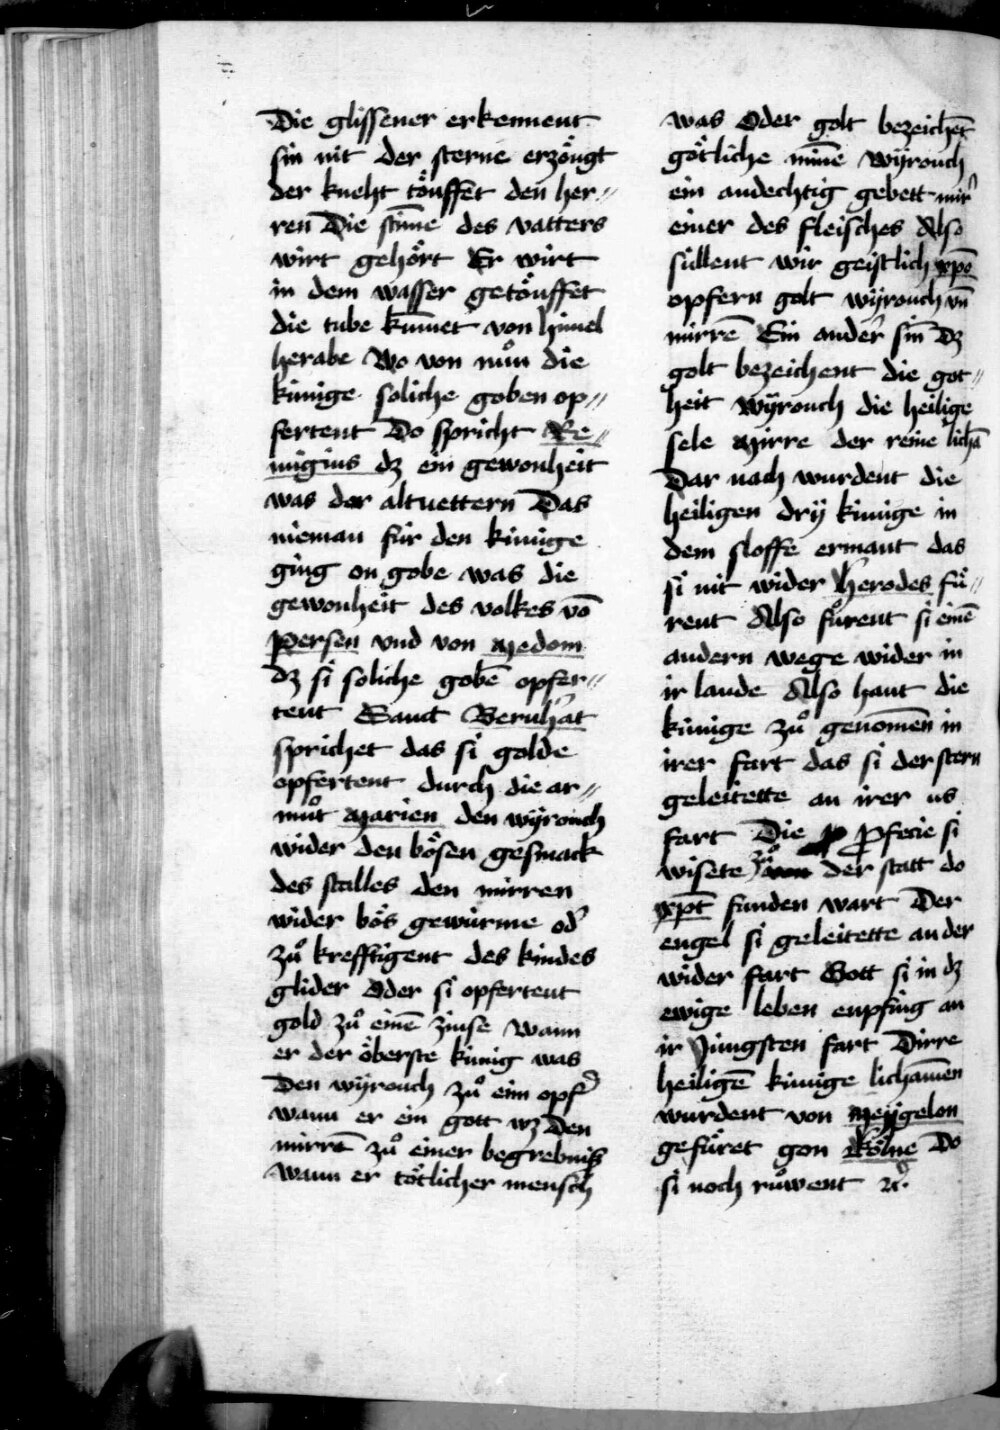 Die glissener erkennent
sin nit der sterne erzöugt
der kneht töuffet den her⸗
ren Die stim̄e des vatters
wirt gehört Er wirt
in dem wasser getöuffet
die tube kum̄et von himel
herabe Wo von nuͦn die
künige soliche goben op⸗
fertent Do spricht Re⸗
migius dz ein gewonheit
was der altuettern Das
nieman für den künige
ging on gobe was die
gewonheit des volkes vō
Persen vnd von Medom
dz si soliche gobē opfer⸗
tent Sanct Bernhat
sprichet das si golde
opfertent durch die ar⸗
muͦt Marien den wÿrouch
wider den bösen gesmack
des stalles den mirren
wider bös gewürme od̛
zuͦ krefftigent des kindes
glider Oder si opfertent
gold zuͦ einē zinse Wann
er der öberste künig was
Den wÿrouch zuͦ eim opf̛
wann er ein gott wz Den
mirrē zuͦ einer begrebniß
wann er tötlicher mensch
was Oder golt bezeichēt
götliche min̄e Wÿrouch
ein andechtig gebett mir̛
einer des fleisches Also
süllent wir geistlich xp̄o
opfern golt wÿrouch vn̄
mirrē Ein ander̛ sin̄ dz
golt bezeichent die got⸗
heit wÿrouch die heilige
sele Mirre der reine lichā
Dar nach wurdent die
heiligen drÿ künige in
dem sloffe ermant das
si nit wider Herodes fuͤ⸗
rent Also fuͦrent si einē
andern wege wider in
ir lande Also hant die
künige zuͦ genomēn in
irer fart das si der stern
geleitette an irer us
fart Die p Pfecie si
wisete zuͦ von der statt do
xp̄t funden wart Der
engel si geleitette an der
wider fart Gott si in dz
ewige leben enpfing an
ir Jüngsten fart Dirre
heiligē künige lichamēn
wurdent von Meÿgelon
gefüret gon Kölne Do
si noch ruͦwent ꝛc̛.